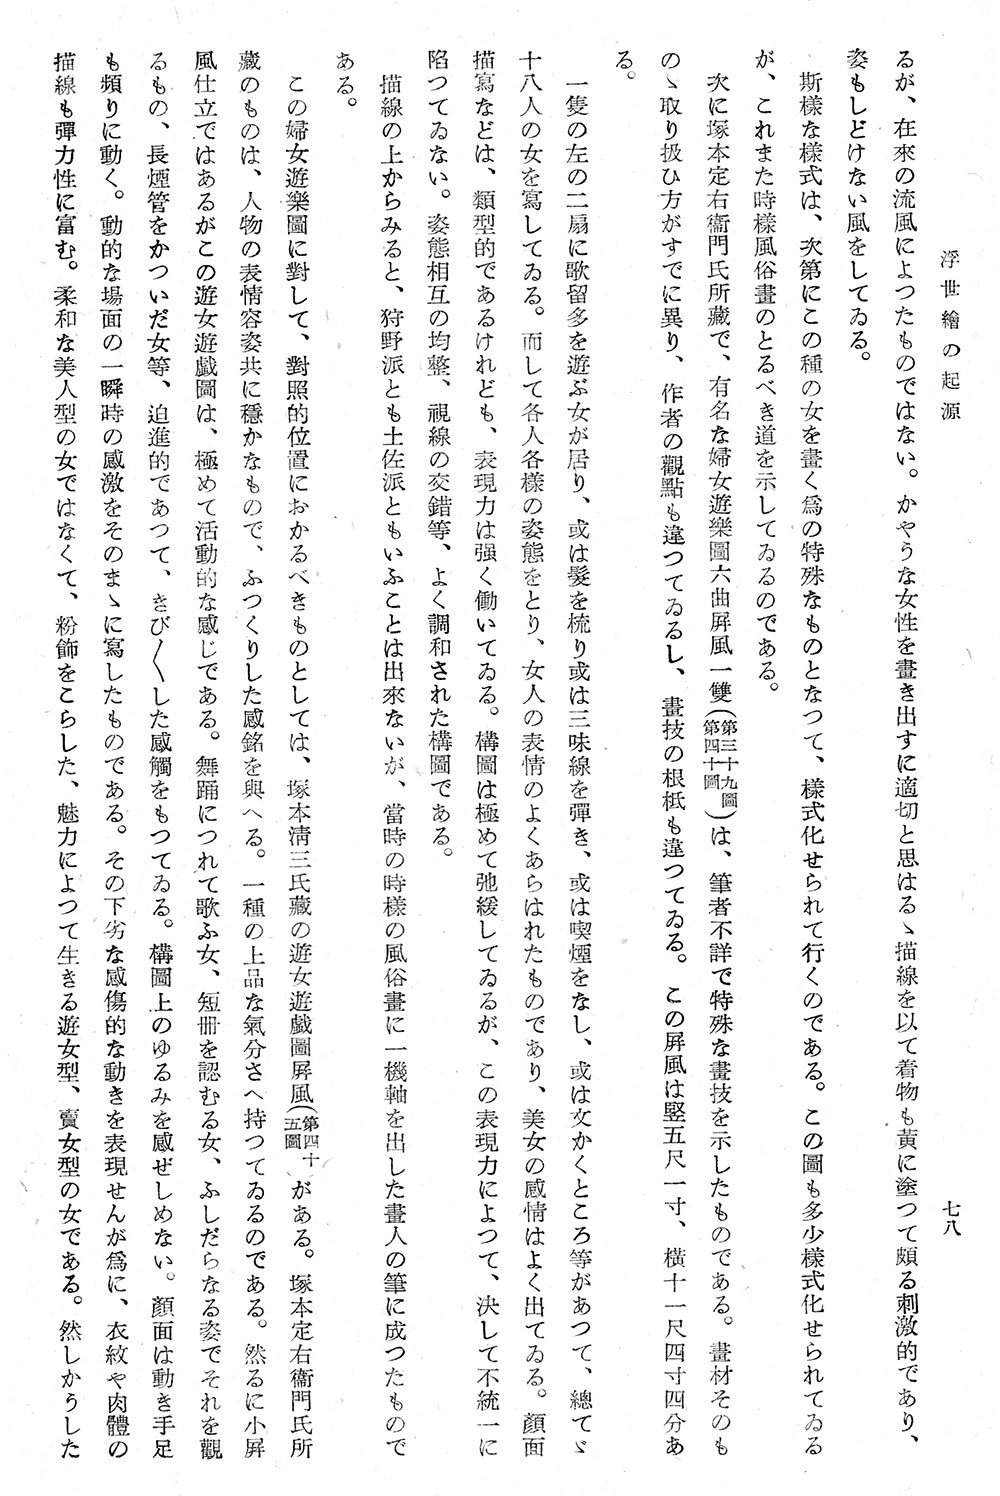 浮世繪の起源
七八
るが、在來の流風によつたものではない。かやうな女性を畫き出すに適切と思はるゝ描線を以て着物も黃に塗つて頗る刺激的であり、
姿もしどけない風をしてゐる。
斯樣な樣式は、次第にこの種の女を畫く爲の特殊なものとなつて、樣式化せられて行くのである。この圖も多少樣式化せられてゐる
が、これまた時樣風俗畫のとるべき道を示してゐるのである。
次に塚本定右衞門氏所藏で、有名な婦女遊樂圖六曲屛風一雙(第三十九圖第四十圖)は、筆者不詳で特殊な畫技を示したものである。畫材そのも
のゝ取り扱ひ方がすでに異り、作者の觀點も違つてゐるし、畫技の根柢も違つてゐる。この屛風は竪五尺一寸、橫十一尺四寸四分あ
る。
一隻の左の二扇に歌留多を遊ぶ女が居り、或は髮を梳り或は三味線を彈き、或は喫煙をなし、或は文かくところ等があつて、總てゞ
十八人の女を寫してゐる。而して各人各樣の姿態をとり、女人の表情のよくあらはれたものであり、美女の感情はよく出てゐる。顏面
描寫などは、類型的であるけれども、表現力は强く働いてゐる。構圖は極めて弛緩してゐるが、この表現力によつて、決して不統一に
陷つてゐない。姿態相互の均整、視線の交錯等、よく調和された構圖である。
描線の上からみると、狩野派とも土佐派ともいふことは出來ないが、當時の時樣の風俗畫に一機軸を出した畫人の筆に成つたもので
ある。
この婦女遊樂圖に對して、對照的位置におかるべきものとしては、塚本淸三氏藏の遊女遊戲圖屛風(第四十五圖)がある。塚本定右衞門氏所
藏のものは、人物の表情容姿共に穩かなもので、ふつくりした感銘を與へる。一種の上品な氣分さへ持つてゐるのである。然るに小屛
風仕立ではあるがこの遊女遊戲圖は、極めて活動的な感じである。舞踊につれて歌ふ女、短册を認むる女、ふしだらなる姿でそれを觀
るもの、長煙管をかついだ女等、迫進的であつて、きび〱した感觸をもつてゐる。構圖上のゆるみを感ぜしめない。顏面は動き手足
も頻りに動く。動的な場面の一瞬時の感激をそのまゝに寫したものである。その下劣な感傷的な動きを表現せんが爲に、衣紋や肉體の
描線も彈力性に富む。柔和な美人型の女ではなくて、粉飾をこらした、魅力によつて生きる遊女型、賣女型の女である。然しかうした